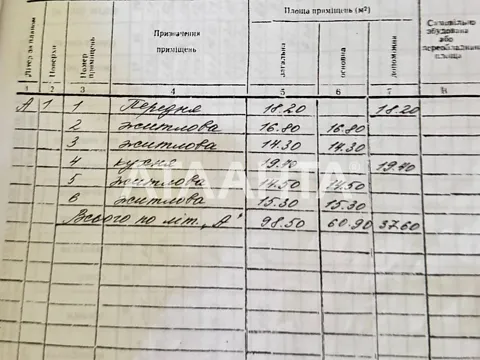 Літер за планом
Поверхи
Номер приміщень
Призначення приміщень
Площа приміщень (м²)
загальна
основна
допоміжна
Самовільно збудована або переобладнана площа
1 2 3 4 5 6 7 8
А 1 1 Передня 18.20 18.20
2 житлова 16.80 16.80
3 житлова 14.30 14.30
4 кухня 19.40 19.40
5 житлова 14.50 14.50
6 житлова 15.30 15.30
Всього по літ. „А" 98.50 60.90 37.60
АТЛАНТА